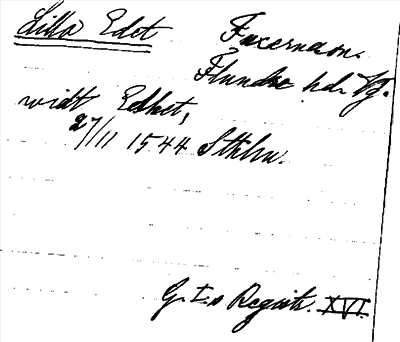 Lilla Edet Fuxerna sn.
Flundre hd. Vg.
widt Edhet,
27/11 1544 Sthlm.
G. I:s Registr. XVI.